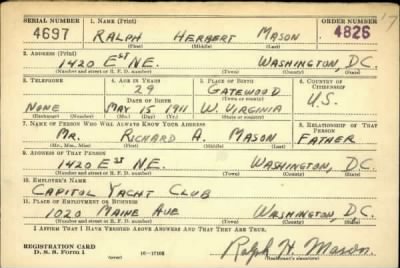 SERIAL NUMBER 1. NAME (Print) ORDER NUMBER
4697 RALPH HERBERT MASON 4826
(First) (Middle) (Last)
2. ADDRESS (Print)
1420 E ST NE. WASHINGTON, D.C.
(Number and street or R. F. D. number) (Town) (County) (State)
3. TELEPHONE 4. AGE IN YEARS 5. PLACE OF BIRTH 6. COUNTRY OF CITIZENSHIP
29 GATEWOOD
DATE OF BIRTH (Town or county) U.S.
NONE MAY 15 1911 W. VIRGINIA
(Exchange) (Number) (Mo.) (Day) (Yr.) (State or country)
7. NAME OF PERSON WHO WILL ALWAYS KNOW YOUR ADDRESS 8. RELATIONSHIP OF THAT PERSON
MR. RICHARD A. MASON FATHER
(Mr., Mrs., Miss) (First) (Middle) (Last)
9. ADDRESS OF THAT PERSON
1420 E ST NE. WASHINGTON, D.C.
(Number and street or R. F. D. number) (Town) (County) (State)
10. EMPLOYER'S NAME
CAPITOL YACHT CLUB
11. PLACE OF EMPLOYMENT OR BUSINESS
1020 MAINE AVE WASHINGTON, D.C.
(Number and street or R. F. D. number) (Town) (County) (State)
I AFFIRM THAT I HAVE VERIFIED ABOVE ANSWERS AND THAT THEY ARE TRUE.
REGISTRATION CARD
D. S. S. Form 1 16-17105 Ralph H. Mason.
(Registrant's signature)